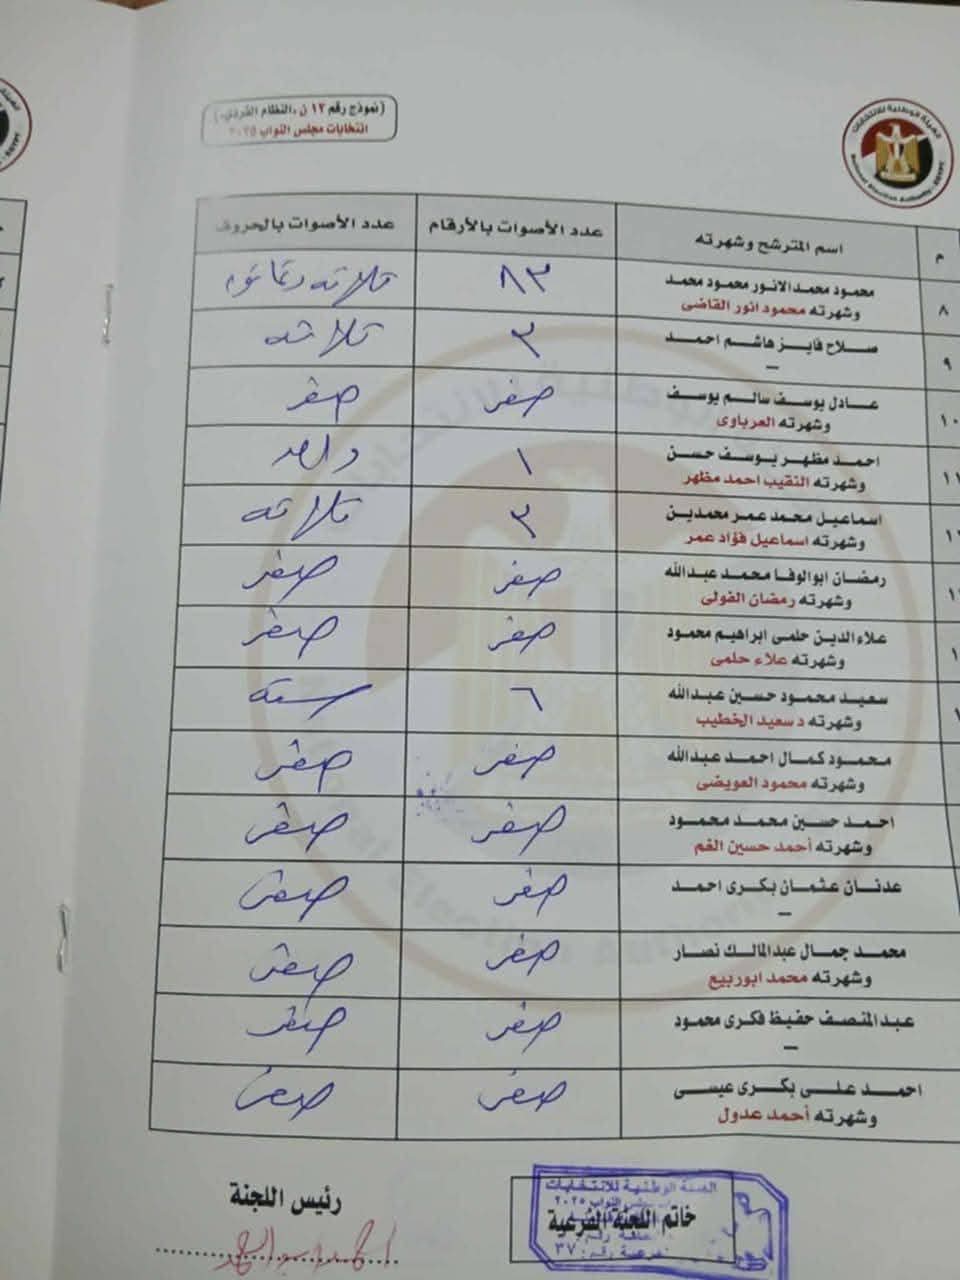 (نموذج رقم ١٣ ن.النظام الفردي)
انتخابات مجلس النواب ٢٠٢٥
الهيئة الوطنية للانتخابات
National Election Authority - EGYPT
م اسم المترشح وشهرته عدد الأصوات بالأرقام عدد الأصوات بالحروف
٨ محمود محمد الانور محمود محمد ٨٣ ثلاثه وثمانون
وشهرته محمود انور القاضى
٩ صلاح فايز هاشم احمد ٣ ثلاثه
–
١٠ عادل يوسف سالم يوسف صفر صفر
وشهرته العرباوى
احمد مظهر يوسف حسن ١ واحد
وشهرته النقيب احمد مظهر
اسماعيل محمد عمر محمدين ٣ ثلاثه
وشهرته اسماعيل فؤاد عمر
رمضان ابوالوفا محمد عبدالله صفر صفر
وشهرته رمضان الفولى
علاء الدين حلمى ابراهيم محمود صفر صفر
وشهرته علاء حلمى
سعيد محمود حسين عبدالله ٦ سته
وشهرته د سعيد الخطيب
محمود كمال احمد عبدالله صفر صفر
وشهرته محمود العويضى
احمد حسين محمد محمود صفر صفر
وشهرته أحمد حسين الغم
عدنان عثمان بكرى احمد صفر صفر
–
محمد جمال عبدالمالك نصار صفر صفر
وشهرته محمد ابوربيع
عبدالمنصف حفيظ فكرى محمود صفر صفر
–
احمد على بكرى عيسى صفر صفر
وشهرته أحمد عدول
رئيس اللجنة
خاتم اللجنة الفرعية
الهيئة الوطنية للانتخابات
النواب ٢٠٢٥
رقم: ٣٧